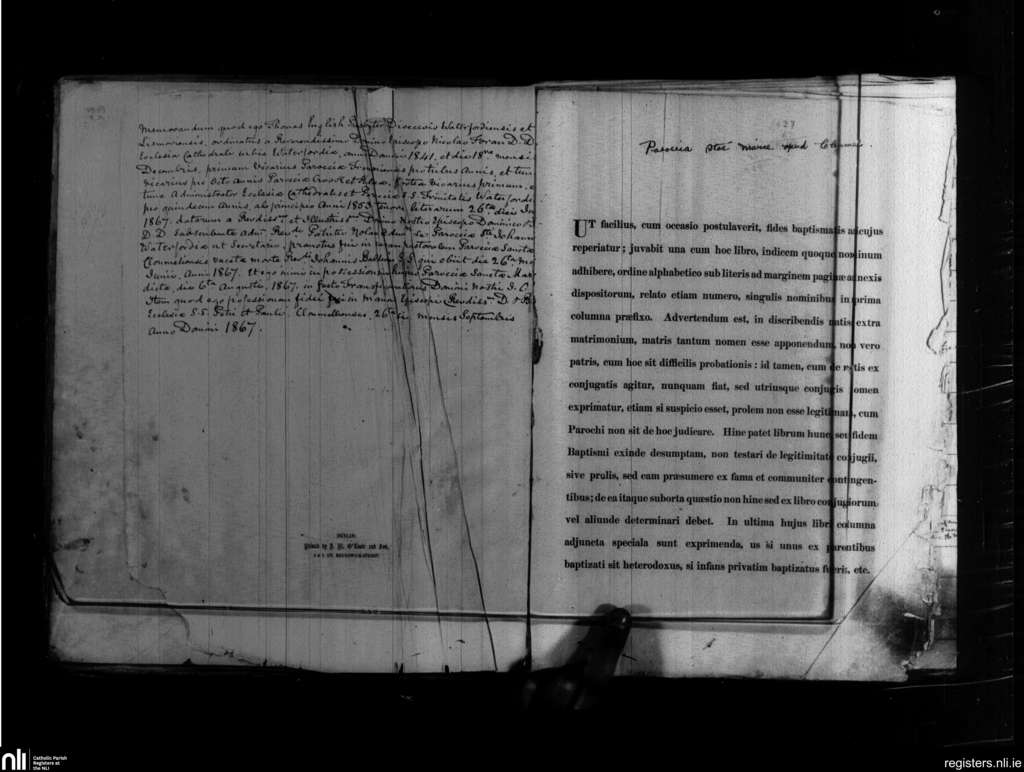 Memorandum quod ego Thomas English Presbyter Dioecesis Waterfordiensis et
Lismorensis, ordinatus a Reverendissimo Domino Episcopo Nicolao Foran D. D.
Ecclesia Cathedrali urbis Waterfordiæ, anno Domini 1841, et die 18no mensis
Decembris, primum Vicarius Paroeciæ
Vicarius pro octo annis Paroeciæ Crook et postea Vicarius primum, et
tunc Administrator Ecclesiæ Cathedralis et Paroeciæ S.S. Trinitatis Waterford
pro quindecim Annis, ab principio Anni 1853 tenore literarum 26ta dies
1867. datarum a Revdiss. et Illustriss. Domino Nostro Episcopo Dominico
D. D. Subscribente Adm. Revdo Patritio Nolan Paroeciæ Sti Johannis
Waterfordiæ ut Secretario, promotus fui in curam pastoralem Paroeciæ Sanctæ
Clonmeliensis vacatæ morte Revdi Johannis qui obiit die 26ta
Junii, Anni 1867. Et ego missus in possessionem hujus Paroeciæ Sanctæ Mar
dictæ, die 6ta Augusti, 1867. in festo Transfigurationis Domini Nostri J. C.
Item quod ego professionem fidei feci in manu Episcopi Revdiss. D.
Ecclesiæ S.S. Petri et Pauli, Clonmeliensis, 26ta die mensis Septembris
Anno Domini 1867.
DUBLIN:
Printed by J. M. O'Toole and Son,
6 & 7, GT. BRUNSWICK-STREET
27
Paroecia Stae Mariæ apud
UT facilius, cum occasio postulaverit, fides baptismatis alicujus
reperiatur; juvabit una cum hoc libro, indicem quoque nominum
adhibere, ordine alphabetico sub literis ad marginem paginæ annexis
dispositorum, relato etiam numero, singulis nominibus in prima
columna præfixo. Advertendum est, in discribendis natis extra
matrimonium, matris tantum nomen esse apponendum, non vero
patris, cum hoc sit difficilis probationis: id tamen, cum de natis ex
conjugatis agitur, nunquam fiat, sed utriusque conjugis nomen
exprimatur, etiam si suspicio esset, prolem non esse legitimam, cum
Parochi non sit de hoc judicare. Hinc patet librum hunc, seu fidem
Baptismi exinde desumptam, non testari de legitimitate conjugii,
sive prolis, sed eam præsumere ex fama et communiter contingen-
tibus; de ea itaque suborta quæstio non hinc sed ex libro conjugiorum
vel aliunde determinari debet. In ultima hujus libri columna
adjuncta speciala sunt exprimenda, us si unus ex parentibus
baptizati sit heterodoxus, si infans privatim baptizatus fuerit, etc.
nli
Catholic Parish
Registers at
the NLI
registers.nli.ie